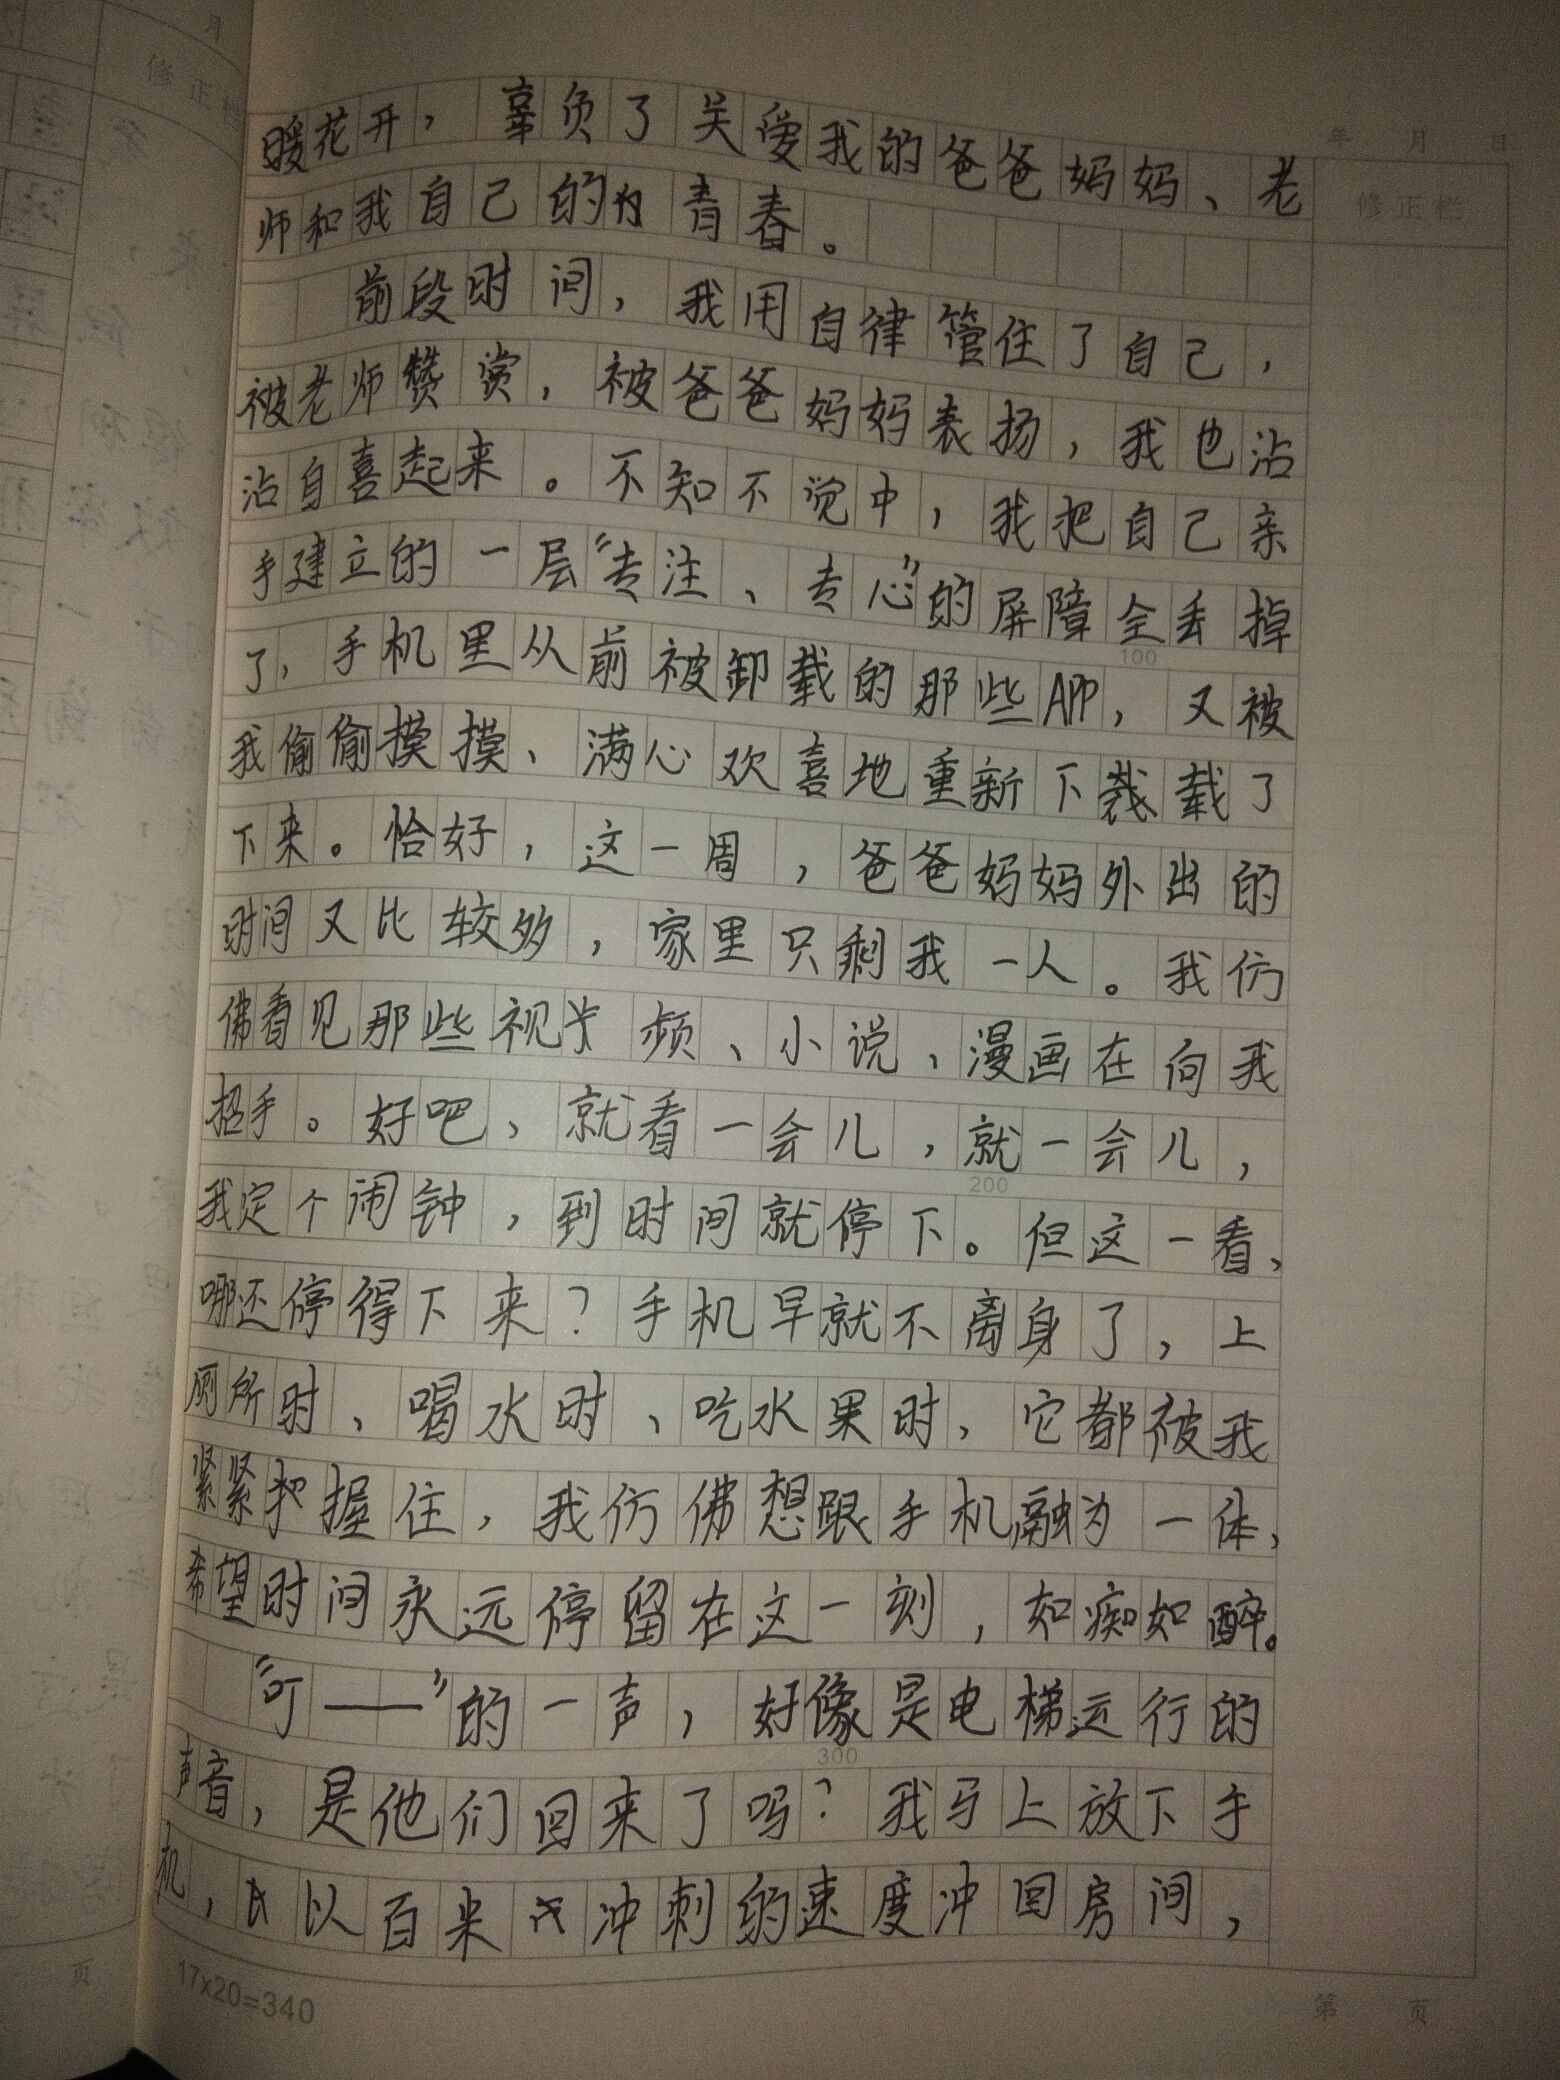 暖花开，辜负了关爱我的爸爸妈妈、老
师和我自己的青春。
前段时间，我用自律管住了自己，
被老师赞赏，被爸爸妈妈表扬，我也沾
沾自喜起来。不知不觉中，我把自己亲
手建立的一层“专注、专心”的屏障全丢掉
了，手机里从前被卸载的那些APP，又被
我偷偷摸摸、满心欢喜地重新下载了
下来。恰好，这一周，爸爸妈妈外出的
时间又比较多，家里只剩我一人。我仿
佛看见那些视频、小说、漫画在向我
招手。好吧，就看一会儿，就一会儿，
我定个闹钟，到时间就停下。但这一看，
哪还停得下来？手机早就不离身了，上
厕所时、喝水时、吃水果时，它都被我
紧紧握住，我仿佛想跟手机融为一体，
希望时间永远停留在这一刻，如痴如醉。
“叮——”的一声，好像是电梯运行的
声音，是他们回来了吗？我马上放下手
机，以百米冲刺的速度冲回房间，
年 月 日
修正栏
100
200
300
17x20=340
第 页
月
修正栏
页